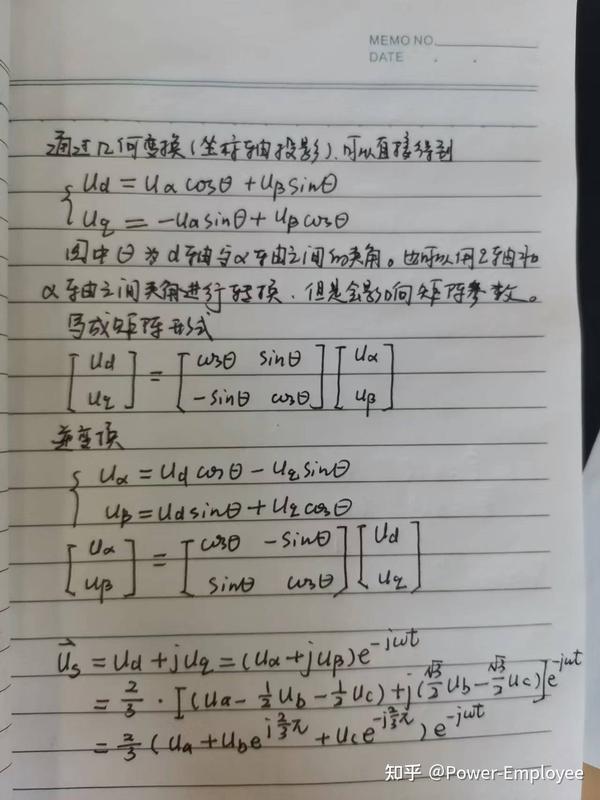 MEMO NO.
DATE . .
通过几何变换(坐标轴投影),可以直接得到
{ Ud = Uα cosθ + Uβ sinθ
Uq = -Uα sinθ + Uβ cosθ
图中 θ 为 d 轴与 α 轴之间的夹角。也可以用 q 轴和
α 轴之间夹角进行转换,但是会影响矩阵参数。
写成矩阵形式
[Ud Uq] = [cosθ sinθ -sinθ cosθ] [Uα Uβ]
逆变换
{ Uα = Ud cosθ - Uq sinθ
Uβ = Ud sinθ + Uq cosθ
[Uα Uβ] = [cosθ -sinθ sinθ cosθ] [Ud Uq]
U⃗s = Ud + jUq = (Uα + jUβ)e^{-jωt}
= 2/3 · [(Ua - 1/2 Ub - 1/2 Uc) + j(√3/2 Ub - √3/2 Uc)]e^{-jωt}
= 2/3 (Ua + Ub e^{j2/3π} + Uc e^{-j2/3π}) e^{-jωt}
知乎 @Power-Employee